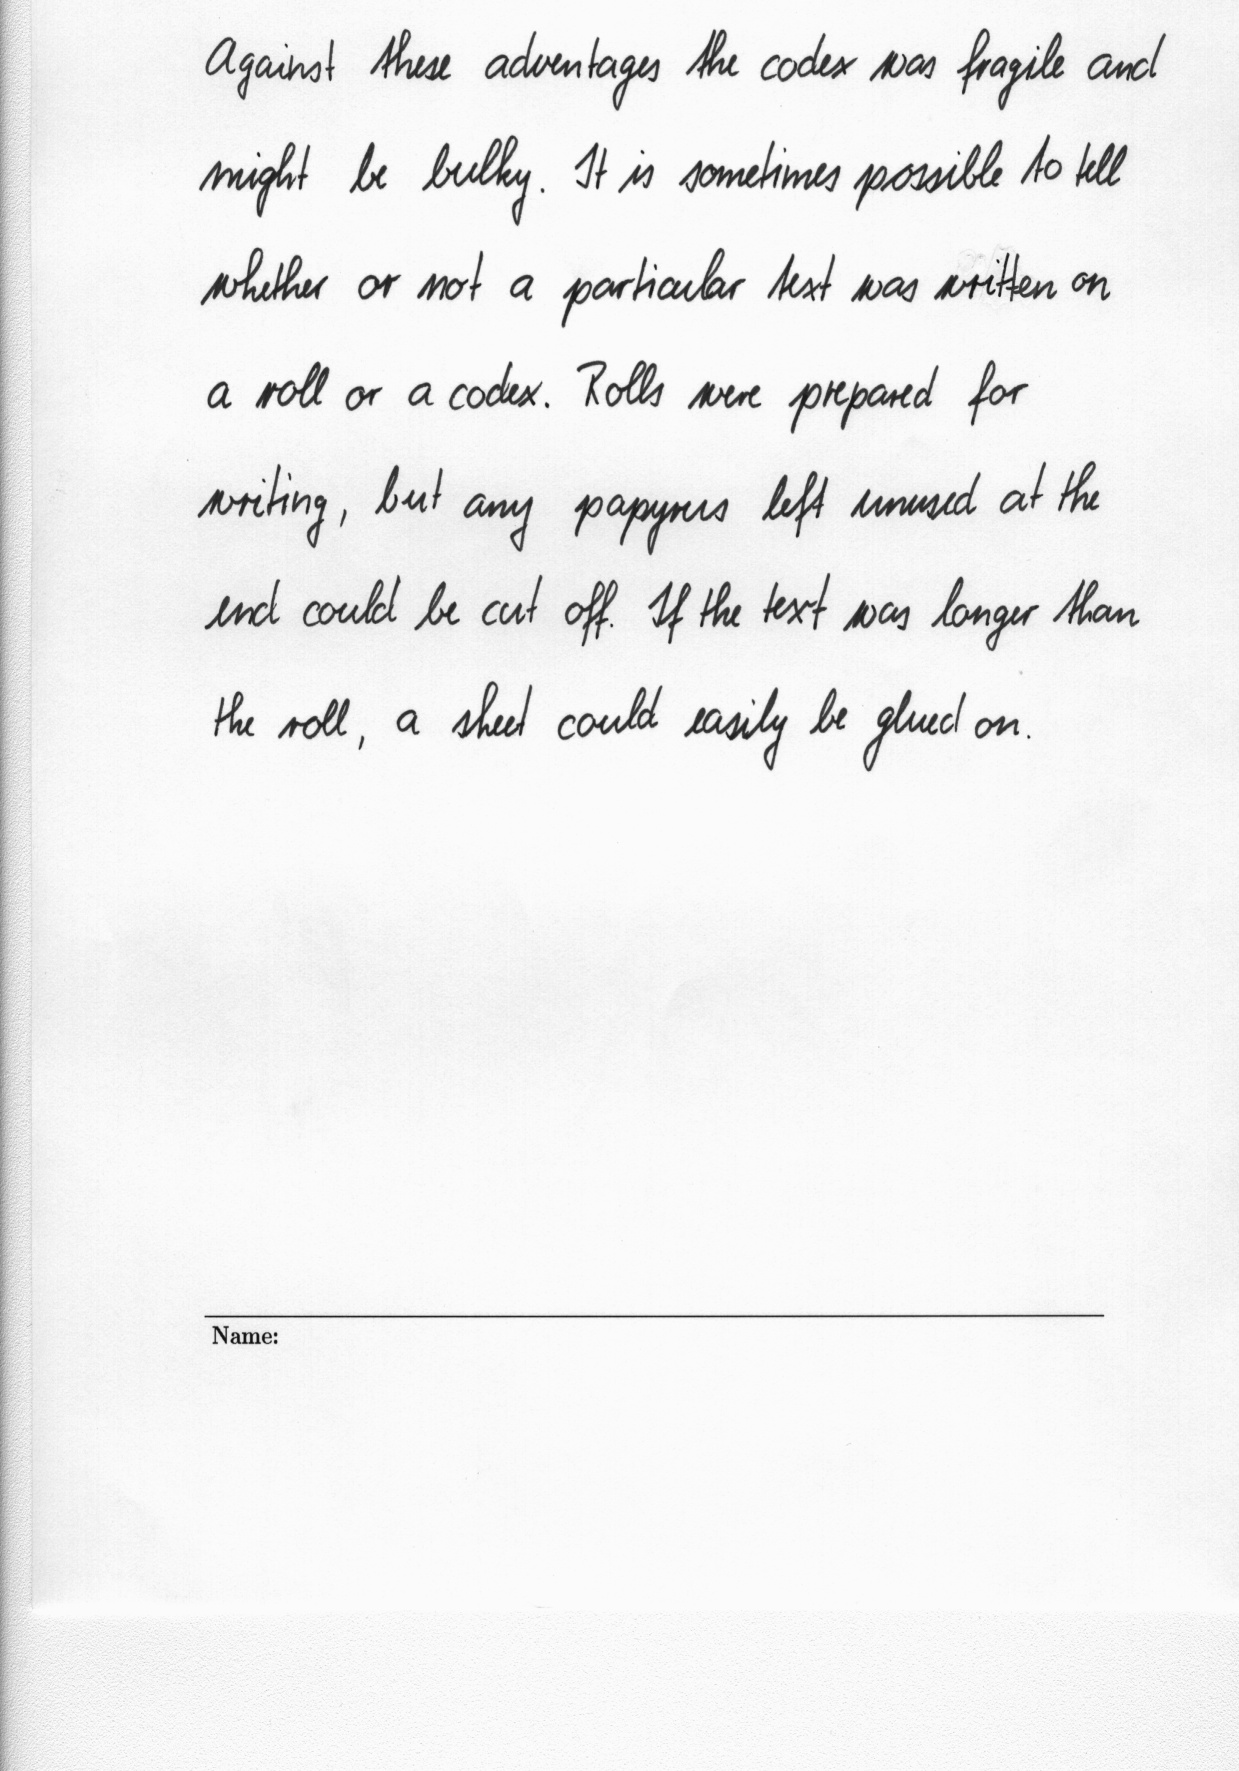 Against these adventages the codex was fragile and
might be bulky. It is sometimes possible to tell
whether or not a particular text was written on
a roll or a codex. Rolls were prepared for
writing, but any papyrus left unused at the
end could be cut off. If the text was longer than
the roll, a sheet could easily be glued on.
Name: